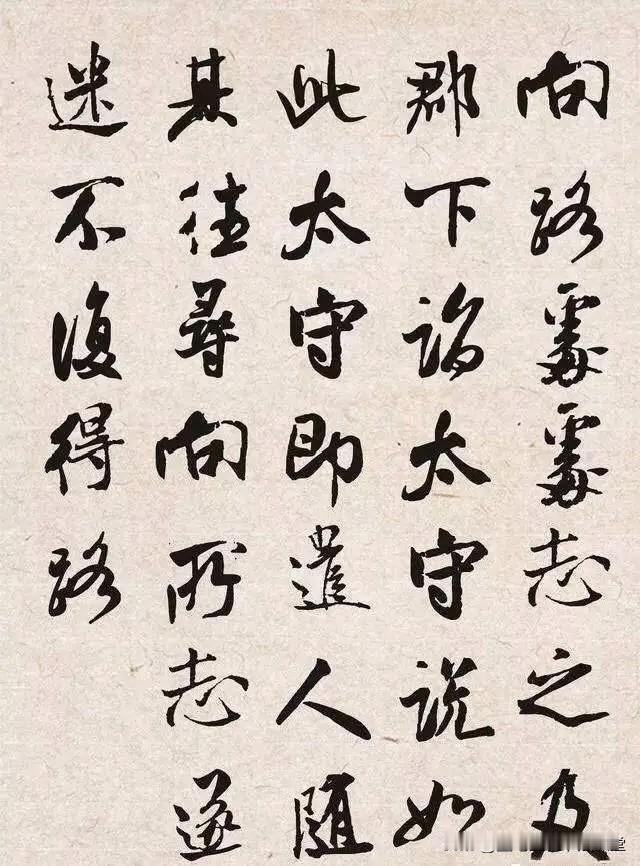 向路處處志之及
郡下詣太守說如
此太守即遣人随
其往尋向所志遂
迷不復得路